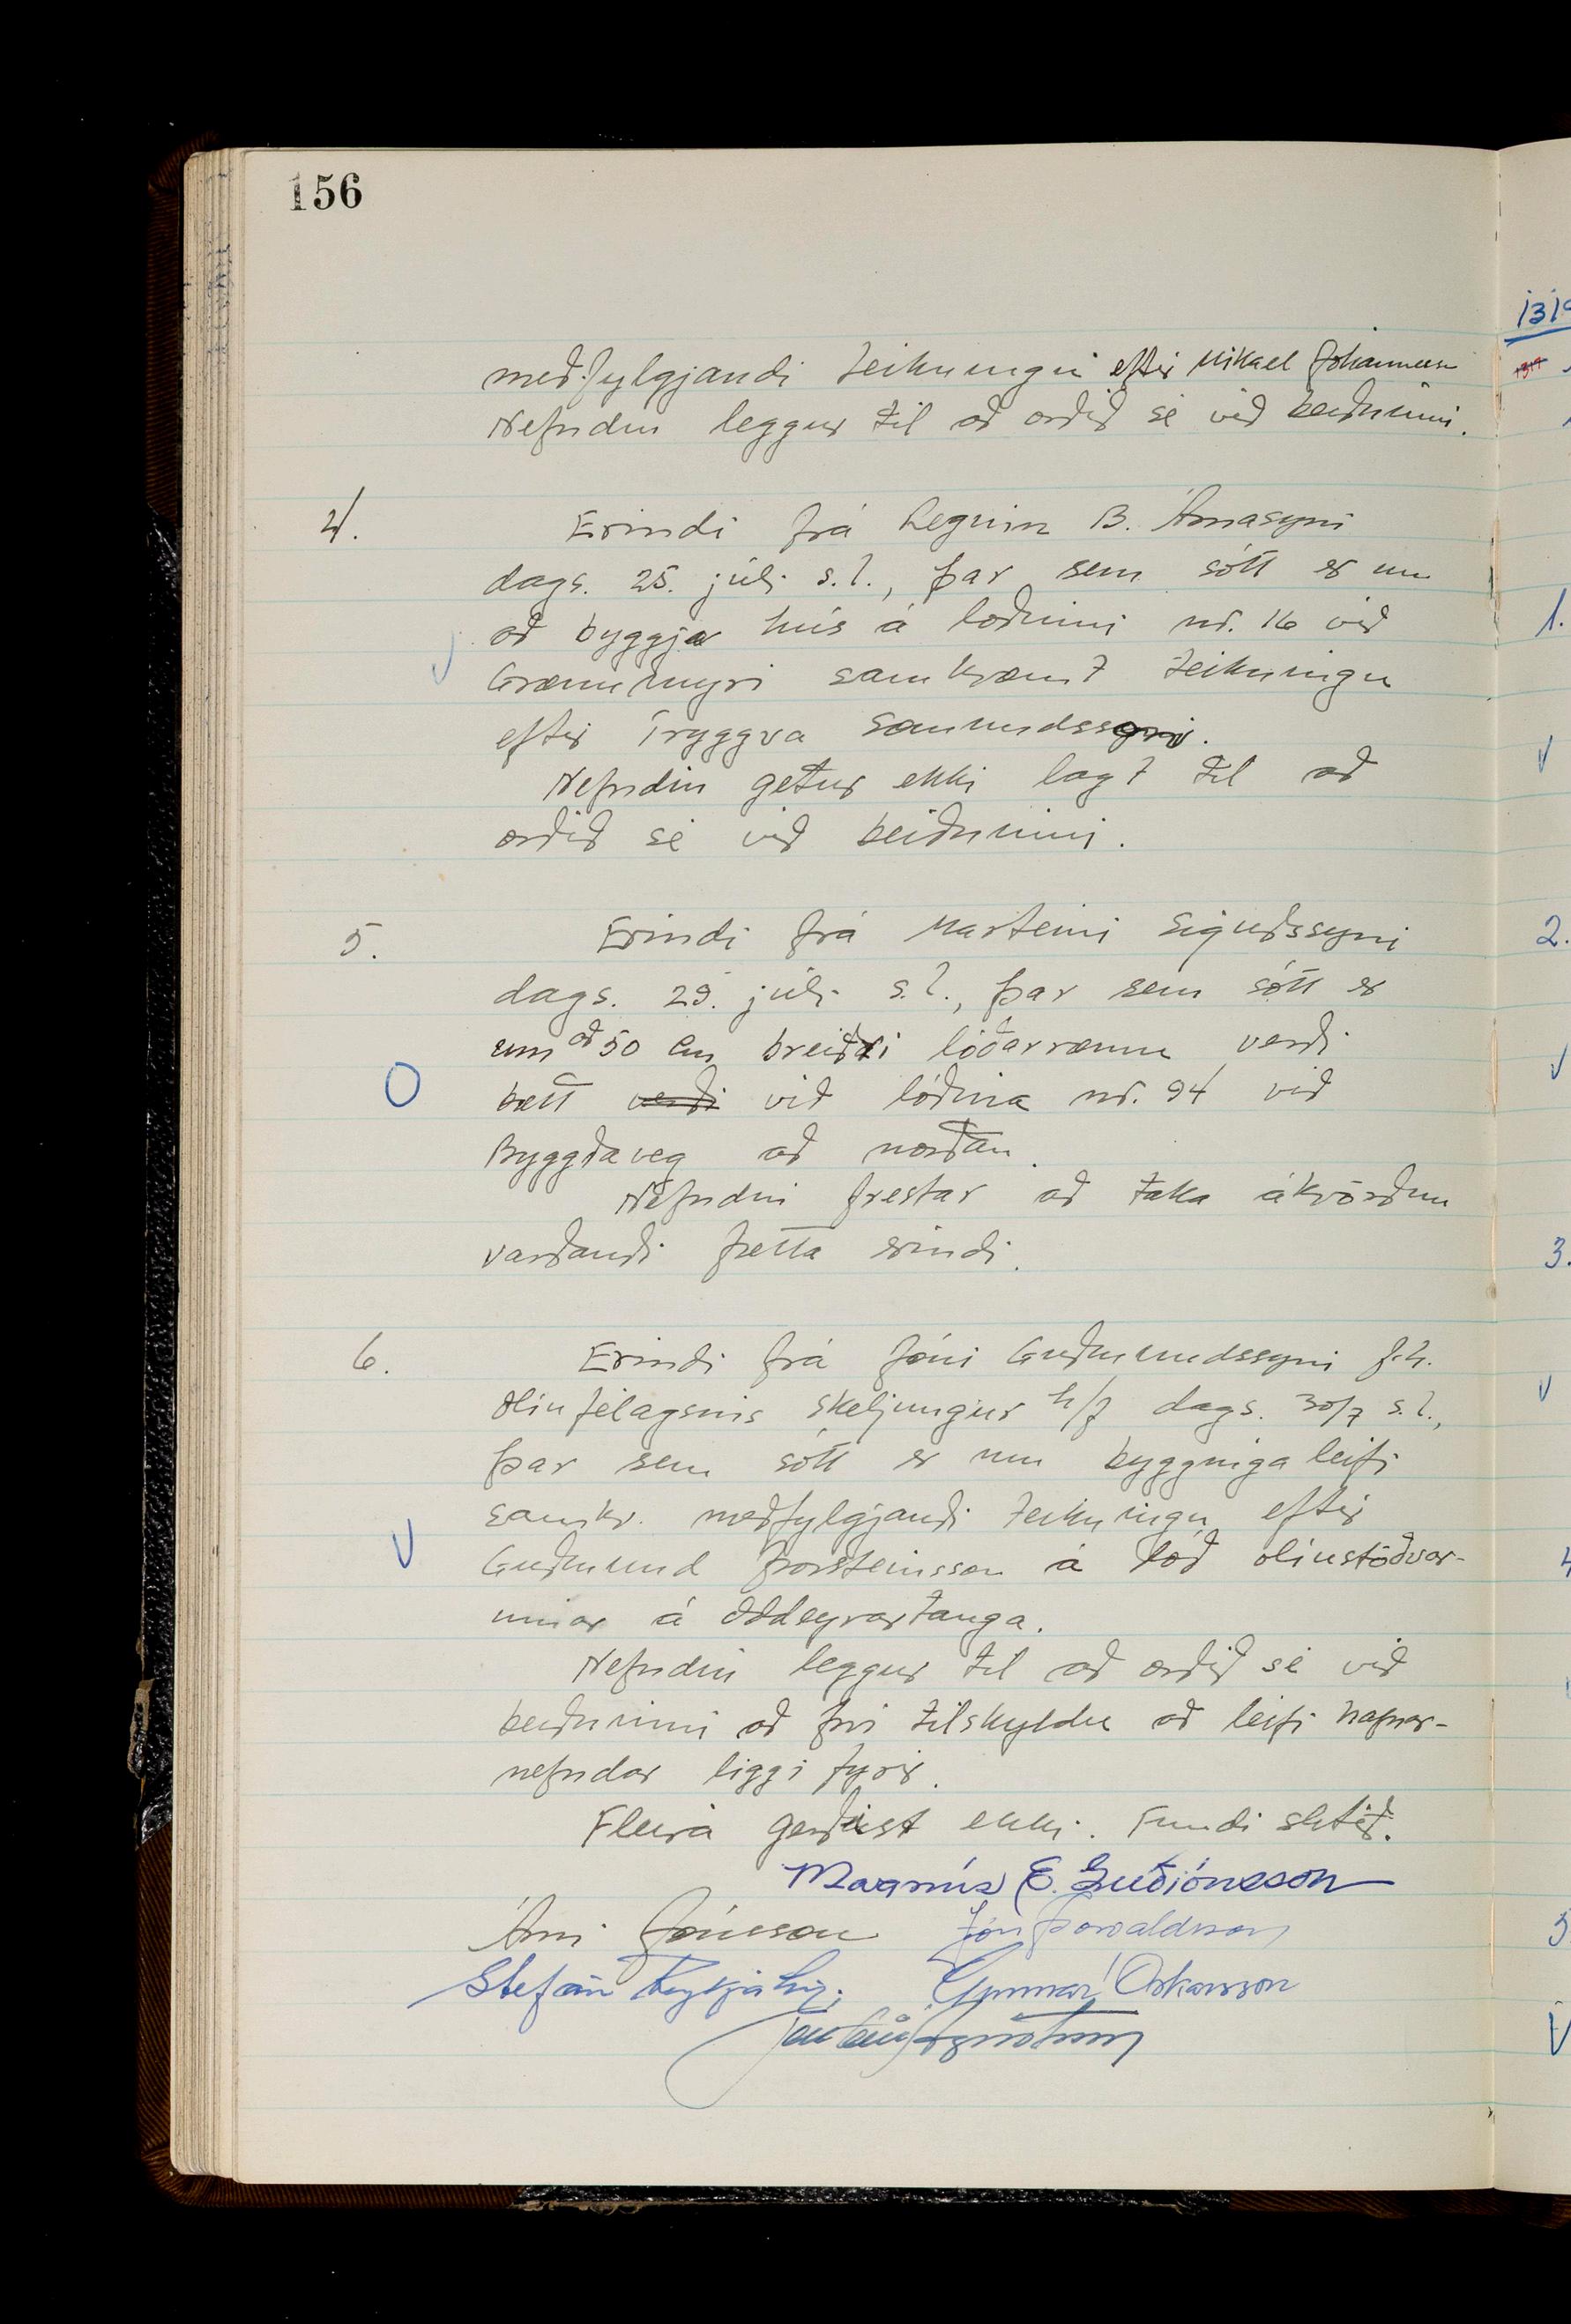 156
meðfylgjandi teikningu eftir Mikael Jóhannesson
Nefndin leggur til að orðið sé við beiðninni.
4.
Erindi frá Hegrim B. Árnasyni
dags. 25. júlí s.l., þar sem sótt er um
að byggja hús á lóðinni nr. 16 við
Grænumýri samkvæmt teikningu
eftir Tryggva Sæmundssyni.
Nefndin getur ekki lagt til að
orðið sé við beiðninni.
5.
Erindi frá Marteini Sigurðssyni
dags. 29. júlí s.l., þar sem sótt er
um að 50 cm breiðri lóðarræmu verði
bætt verði við lóðina nr. 94 við
Byggðaveg að norðan.
Nefndin frestar að taka ákvörðun
varðandi þetta erindi.
6.
Erindi frá Jóni Guðmundssyni f.h.
Olíufélagsins Skeljungur h/f dags. 30/7 s.l.,
þar sem sótt er um byggingaleifi
samkv. meðfylgjandi teikningu eftir
Guðmund Þorsteinsson á lóð olíustöðvar-
innar á Oddeyrartanga.
Nefndin leggur til að orðið sé við
beiðninni að því tilskyldu að leifi hafnar-
nefndar liggi fyrir.
Fleira gerðist ekki. Fundi slitið.
Magnús E. Guðjónsson
Árni Jónsson Jón Þorvaldsson
Stefán Reykjalín. Gunnar Óskarsson
1.
2.
3.